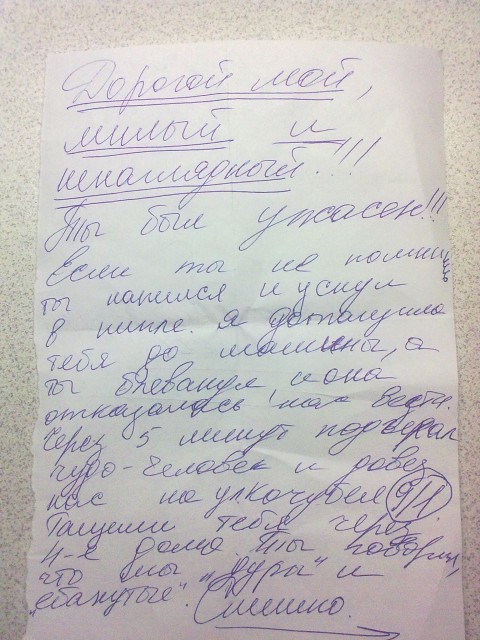 Дорогой мой,
милый и
ненаглядный!!!
Ты был ужасен!!!
Если ты не помнишь,
ты напился и уснул
в
Я дотащила
тебя до машины, а
ты блеванул и она
отказалась нас везти.
Через 5 минут подъехал
чудо-человек и довез
нас на 911
Тащили тебя через
4-е дома Ты говорил,
что мы "дуры" и
"ебанутые". Смешно.